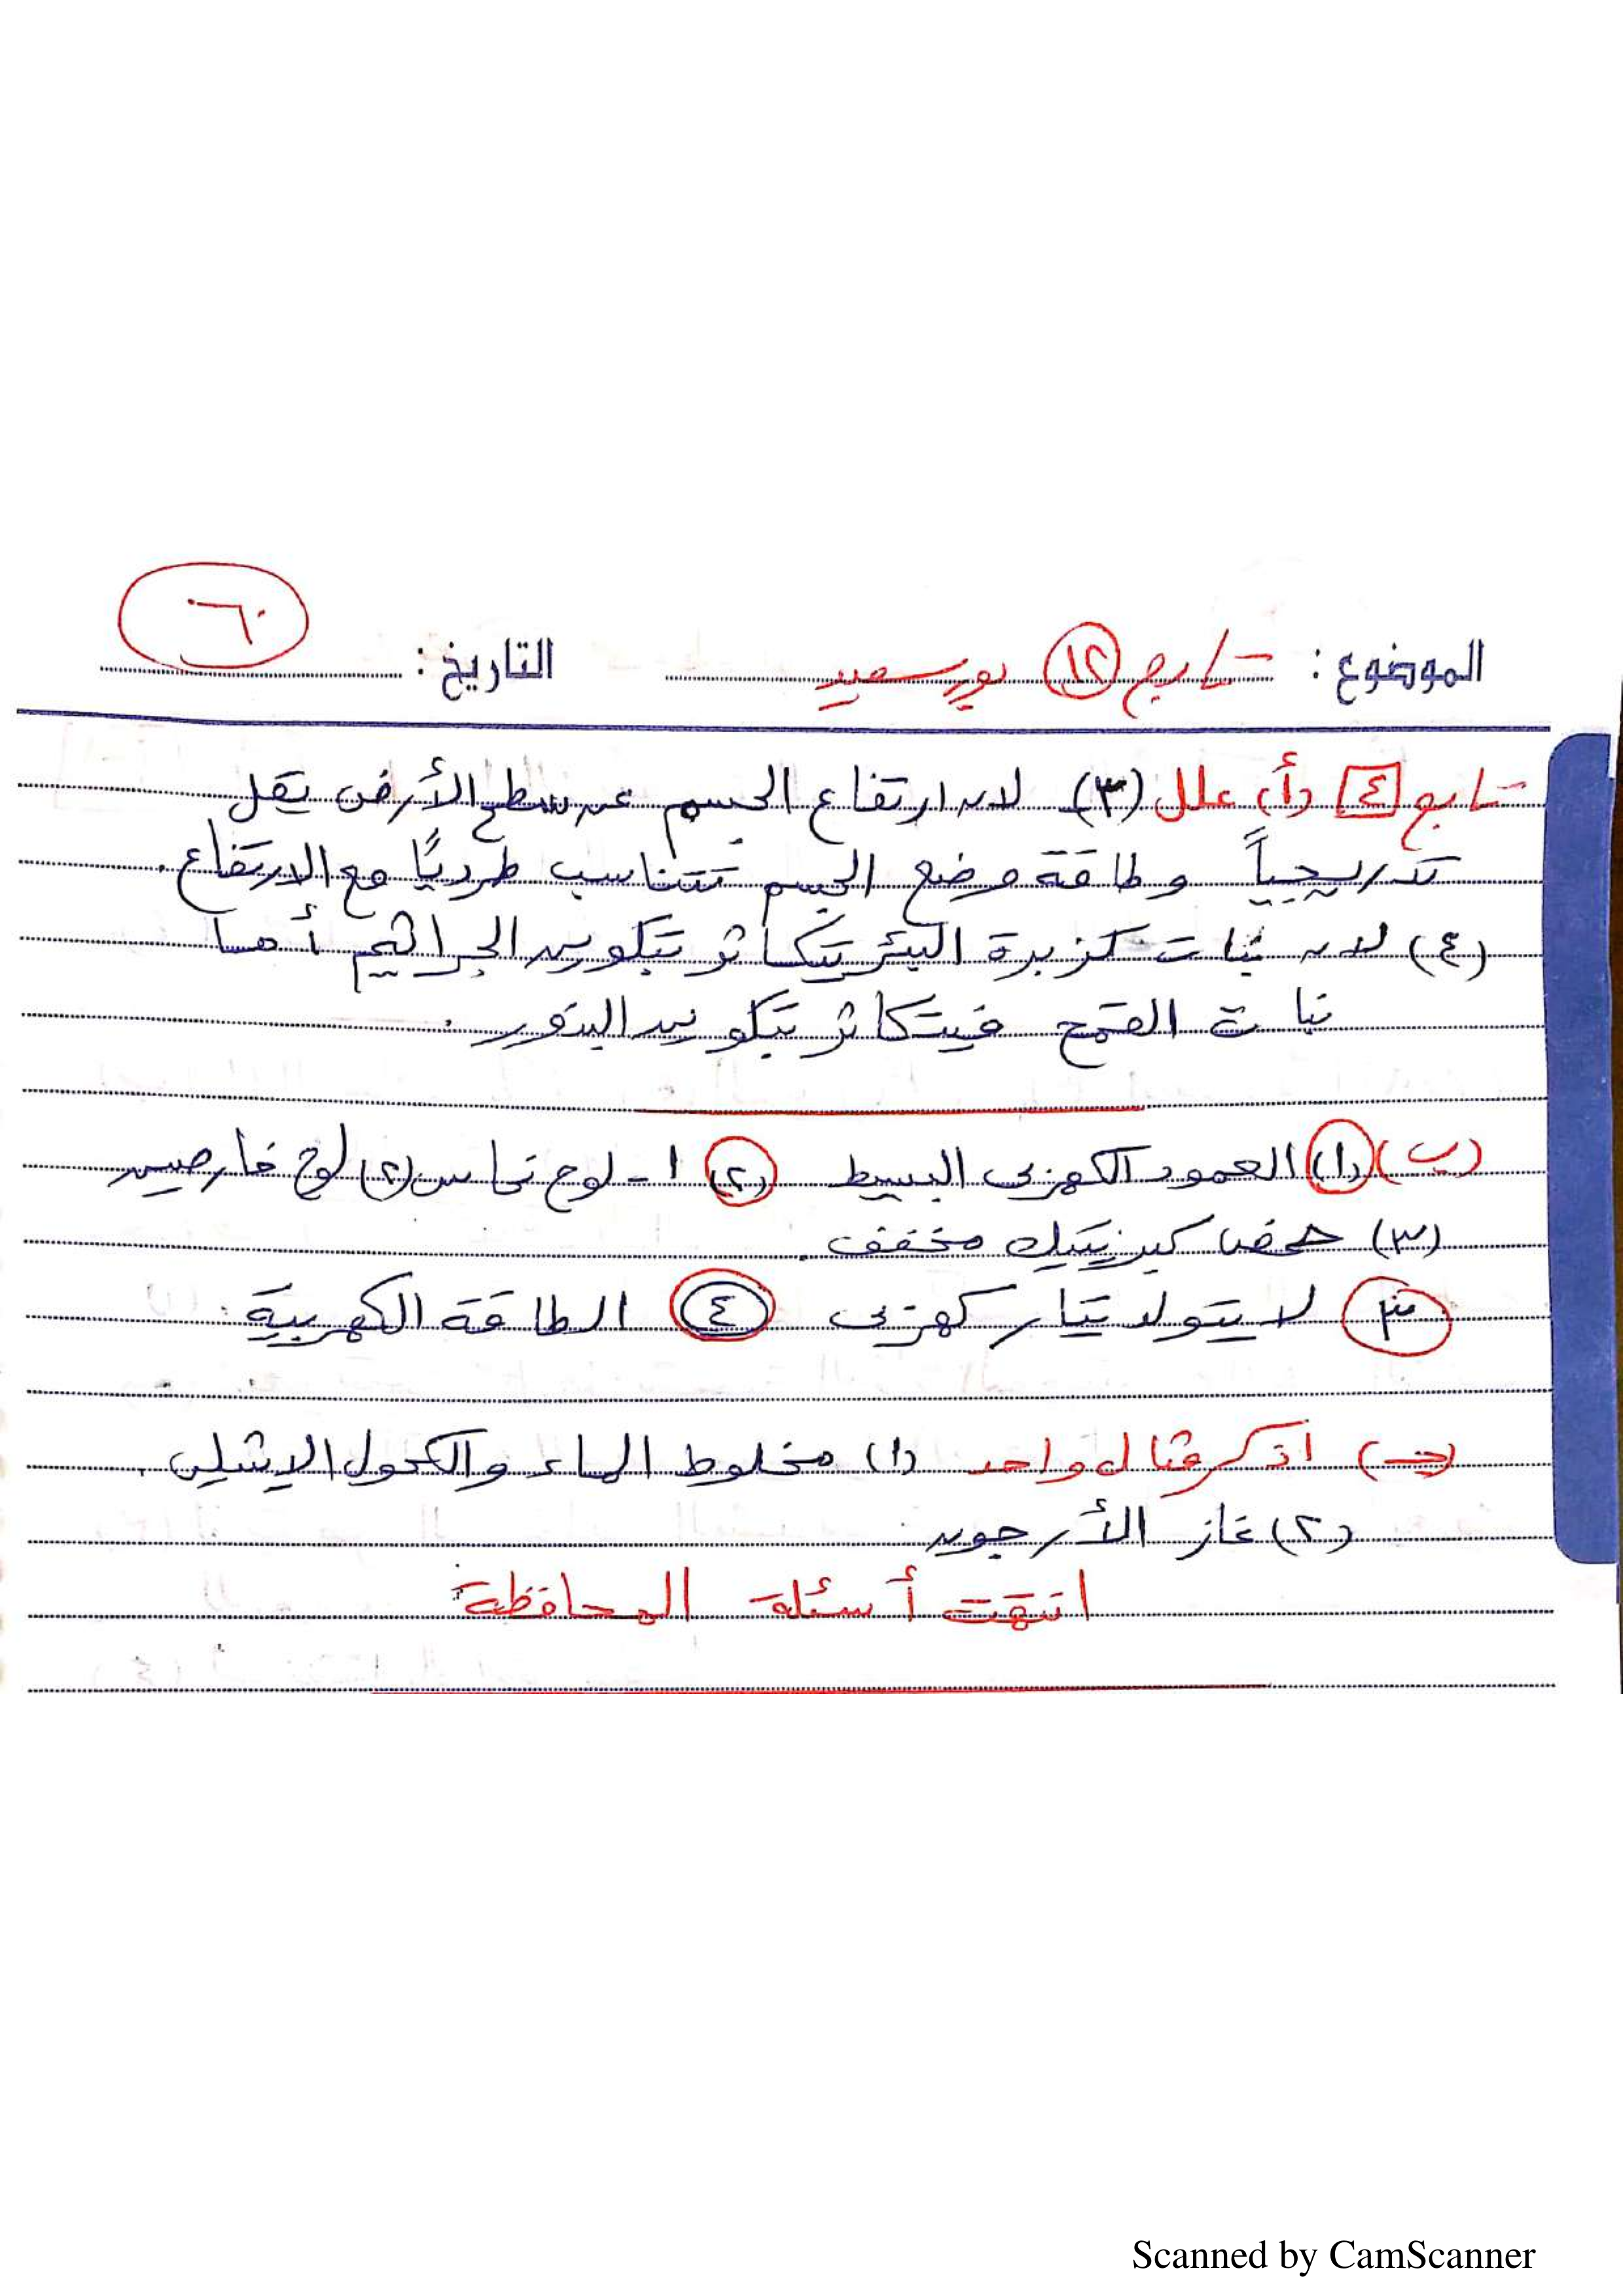 ٦٠
الموضوع: تابع (١٢) بورسعيد التاريخ:
تابع [٤] (أ) علل (٣) لأن ارتفاع الجسم عن سطح الأرض يقل
تدريجياً وطاقة وضع الجسم تتناسب طرديًا مع الارتفاع.
(٤) لأن نبات كزبرة البئر يتكاثر بتكوين الجراثيم أما
نبات القمح فيتكاثر بتكوين البذور.
(ب) (١) العمود الكهربى البسيط (٢) ١- لوح نحاس (٢) لوح خارصين
(٣) حمض كبريتيك مخفف.
(٣) لا يتولد تيار كهربى (٤) الطاقة الكهربية.
(جـ) اذكر مثال واحد (١) مخلوط الماء والكحول الإيثيلى.
(٢) غاز الأرجون.
انتهت أسئلة المحافظة
Scanned by CamScanner